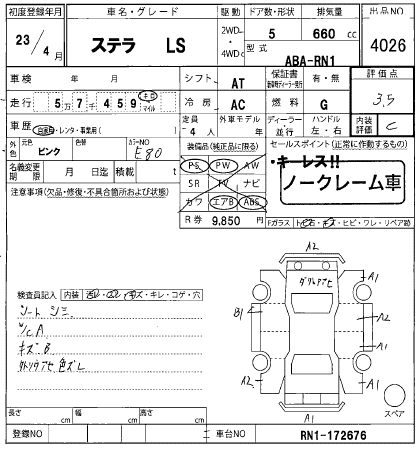 初度登録年月 車名・グレード 駆動 ドア数・形状 排気量 出品NO
23/4月 ステラ LS 2WD・4WD 5 660 cc 4026
型式 ABA-RN1
車検 年 月 シフト AT 保証書 有・無 評価点
走行 5万7千459 キロ マイル 冷房 AC 燃料 G 3.5
車歴 自家用・レンタ・事業用( ) 定員 4人 外車モデル 年 ディーラー 並行 ハンドル 左・右 内装評価 C
外色 元色 ピンク 色替 カラーNO E80 装備品(純正品に限る) セールスポイント(正常に作動するもの)
名義変更期限 月 日迄 積載 t PS PW AW ・キーレス!!
注意事項(欠品・修復・不具合箇所および状態) SR TV ナビ ノークレーム車
カワ エアB ABS
R券 9,850円 Fガラス トビ石・キズ・ヒビ・ワレ・リペア跡
A2
A1
B1
A2
A1
A2
A1
A1
スペア
検査員記入 内装 ヨゴレ・コゲ・キズ・キレ・コゲ・穴
シート シミ
A
キズ B
色ズレ
長さ cm 幅 cm 高さ cm
登録NO 車台NO RN1-172676